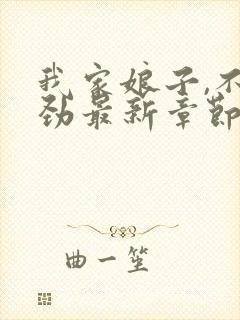 我家娘子,不
劲最新章节
曲一笙